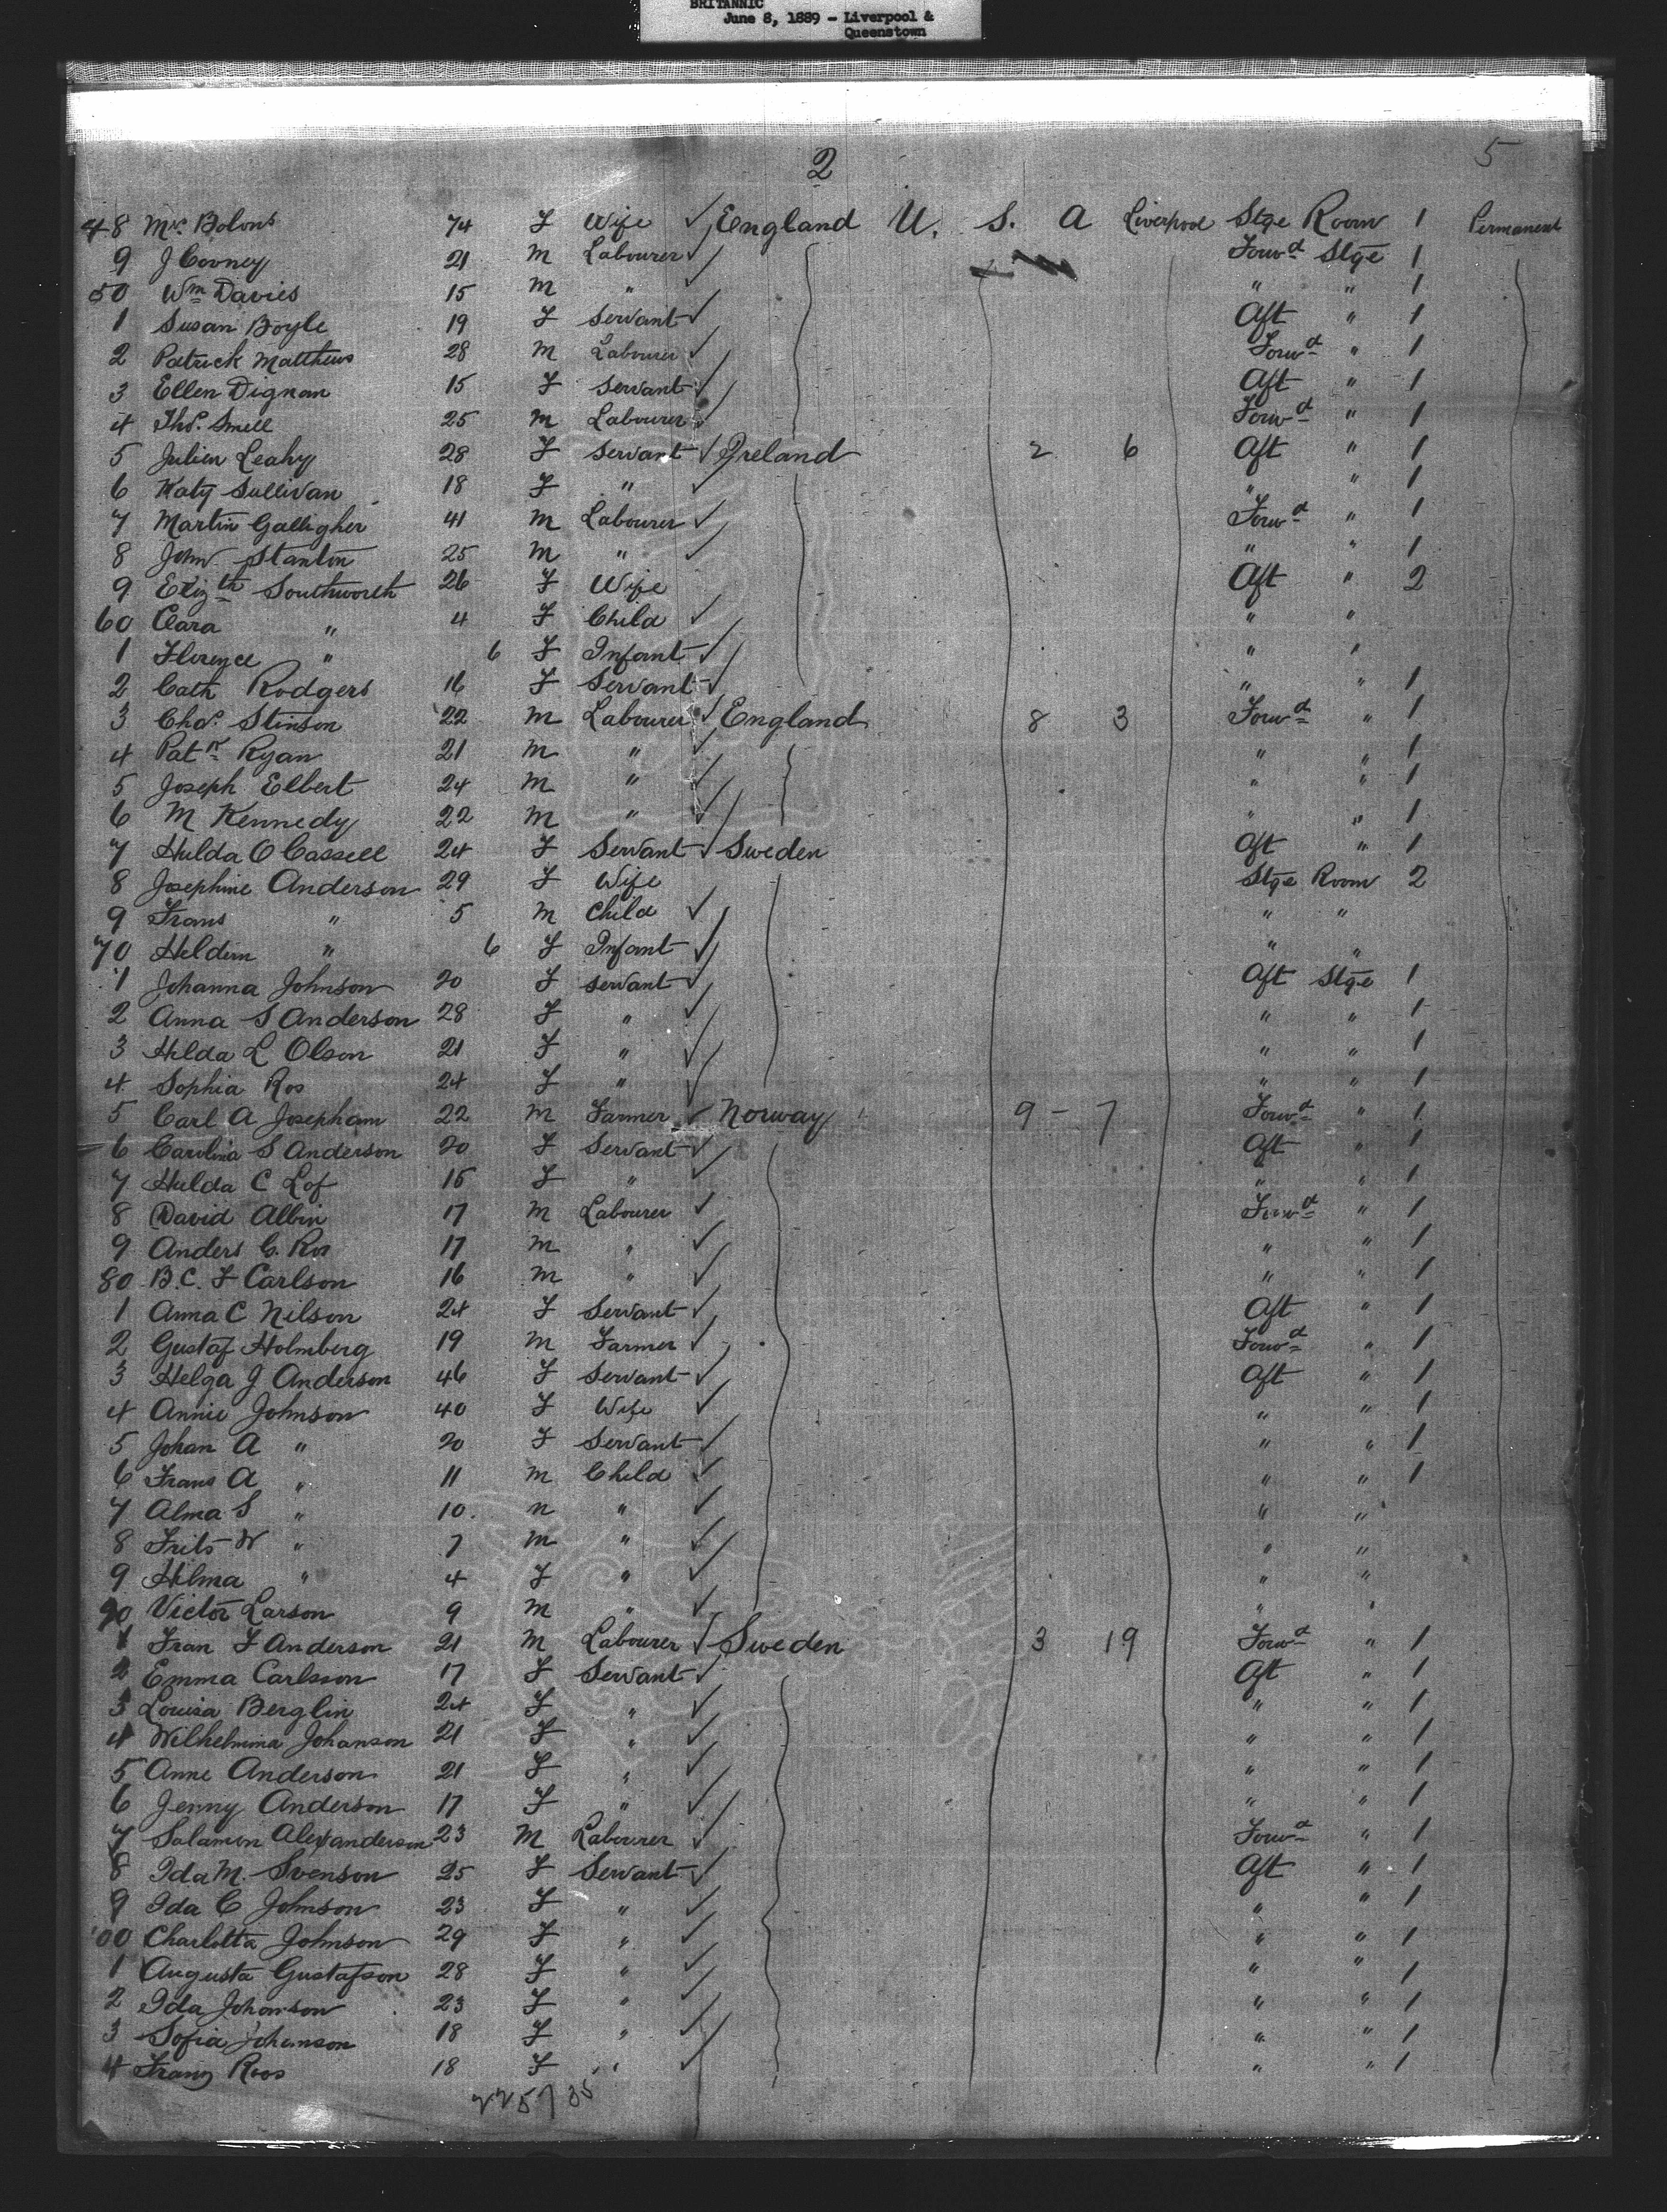 BRITANNIC
June 8, 1889 - Liverpool &
Queenstown
2 5
48 Mrs. Bolons 74 F Wife ✓ England U. S. A Liverpool Stge Room 1 Permanent
9 J Cooney 21 M Labourer ✓ Forwd Stge 1
50 Wm Davies 15 M " ✓ " " 1
1 Susan Boyle 19 F Servant ✓ Aft " 1
2 Patrick Matthews 28 M Labourer ✓ Forwd " 1
3 Ellen Dignan 15 F Servant ✓ Aft " 1
4 Thos. Smell 25 M Labourer ✓ Forwd " 1
5 Julien Leahy 28 F Servant ✓ Ireland 2 6 Aft " 1
6 Katy Sullivan 18 F " ✓ " " 1
7 Martin Galligher 41 M Labourer ✓ Forwd " 1
8 John Stanton 25 M " ✓ " " 1
9 Elizth Southworth 26 F Wife Aft " 2
60 Clara " 4 F Child ✓ " "
1 Florence " 6 F Infant ✓ " "
2 Cath Rodgers 16 F Servant ✓ " " 1
3 Chas. Stinson 22 M Labourer ✓ England 8 3 Forwd " 1
4 Patk Ryan 21 M " ✓ " " 1
5 Joseph Elbert 24 M " ✓ " " 1
6 M Kennedy 22 M " ✓ " " 1
7 Hulda O Cassell 24 F Servant ✓ Sweden Aft " 1
8 Josephine Anderson 29 F Wife Stge Room 2
9 Frans " 5 M Child ✓ " "
70 Heldim " 6 F Infant ✓ " "
1 Johanna Johnson 20 F Servant ✓ Aft Stge 1
2 Anna S Anderson 28 F " ✓ " " 1
3 Hilda L Olson 21 F " ✓ " " 1
4 Sophia Ros 24 F " ✓ " " 1
5 Carl A Josepham 22 M Farmer ✓ Norway 9 - 7 Forwd " 1
6 Carolina S Anderson 20 F Servant ✓ Aft " 1
7 Hulda C Lof 15 F " ✓ " " 1
8 David Albin 17 M Labourer ✓ Forwd " 1
9 Anders G. Ros 17 M " ✓ " " 1
80 B.C. F Carlson 16 M " ✓ " " 1
1 Anna C Nilson 24 F Servant ✓ Aft " 1
2 Gustaf Holmberg 19 M Farmer ✓ Forwd " 1
3 Helga J Anderson 46 F Servant ✓ Aft " 1
4 Annie Johnson 40 F Wife ✓ " " 1
5 Johan A " 20 F Servant ✓ " " 1
6 Frans A " 11 M Child ✓ " " 1
7 Alma S " 10. M " ✓ " "
8 Frits W " 7 M " ✓ " "
9 Hilma " 4 F " ✓ " "
90 Victor Larson 9 M " ✓ " "
1 Fran F Anderson 21 M Labourer ✓ Sweden 3 19 Forwd " 1
2 Emma Carlsson 17 F Servant ✓ Aft " 1
3 Louisa Berglin 24 F " ✓ " " 1
4 Wilhelmina Johanson 21 F " ✓ " " 1
5 Anne Anderson 21 F " ✓ " " 1
6 Jenny Anderson 17 F " ✓ " " 1
7 Salamon Alexanderson 23 M Labourer ✓ Forwd " 1
8 Ida M. Svenson 25 F Servant ✓ Aft " 1
9 Ida C Johnson 23 F " ✓ " " 1
'00 Charlotta Johnson 29 F " ✓ " " 1
1 Augusta Gustafson 28 F " ✓ " " 1
2 Ida Johanson 23 F " ✓ " " 1
3 Sofia Johanson 18 F " ✓ " " 1
4 Franz Roos 18 F " ✓ " " 1